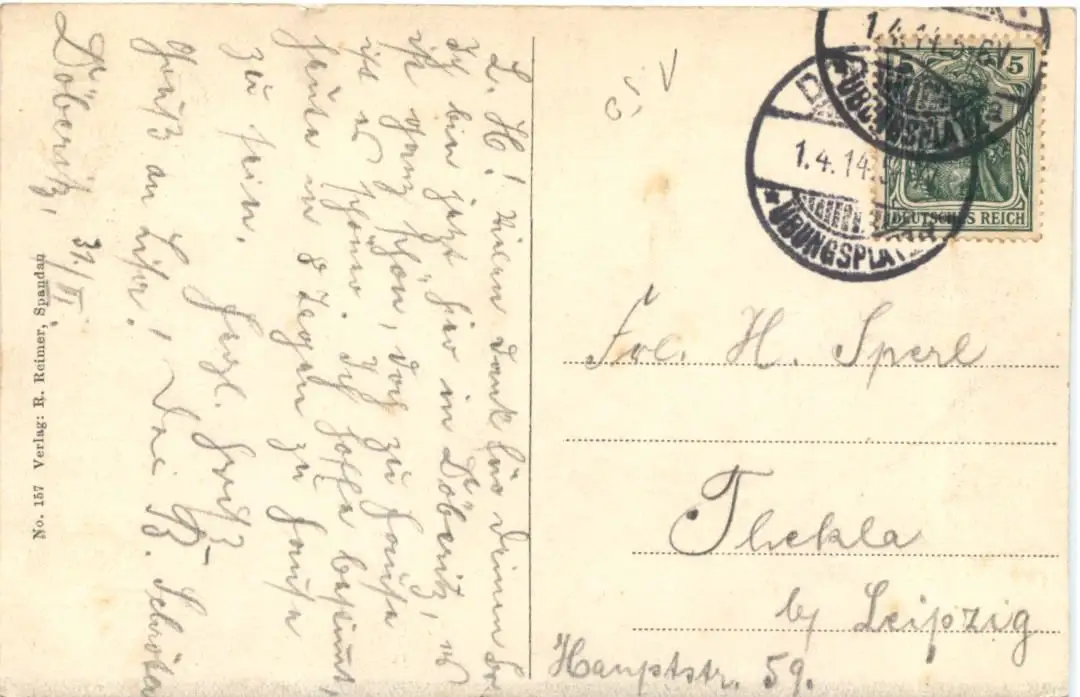 Döberitz, 31/III.
L. H.! Vielen Dank für Deinen Br.
Ich bin jetzt hier in Döberitz, es
ist ganz schön, doch zu Hause
ist es schöner. Ich hoffe bestimmt,
heute in 8 Tagen zu Hause
zu sein. Herzl. Gruß
Gruß an Dein Schröter
No. 157 Verlag: R. Reimer, Spandau
1.4.14
ÜBUNGSPLATZ
1.4.14
ÜBUNGSPLATZ
5
DEUTSCHES REICH
Frl. H. Sperl
Thekla
by Leipzig
Hauptstr. 59.